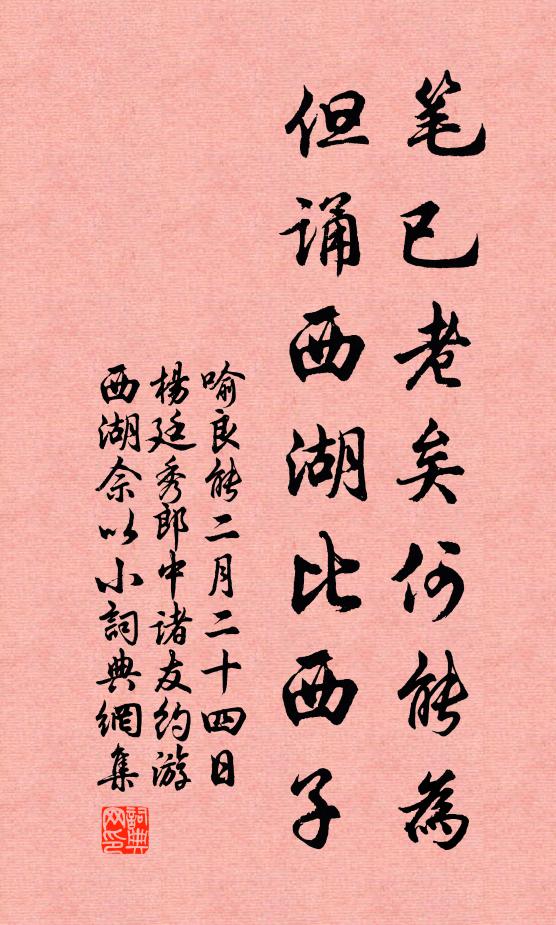 笔已老矣何能為
但诵西湖比西子
喻良能二月二十四日
楊廷秀郎中诸友约游
西湖余以小詞典網集
詞典
网印